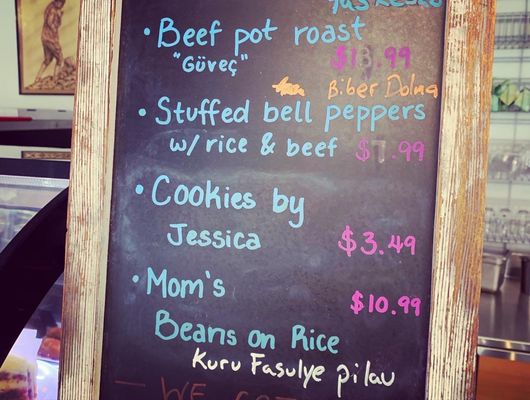 • Beef pot roast
"Güveç" $18.99
Biber Dolma
• Stuffed bell peppers
w/ rice & beef
• Cookies by
Jessica $3.49
• Mom's $10.99
Beans on Rice
Kuru Fasulye pilau